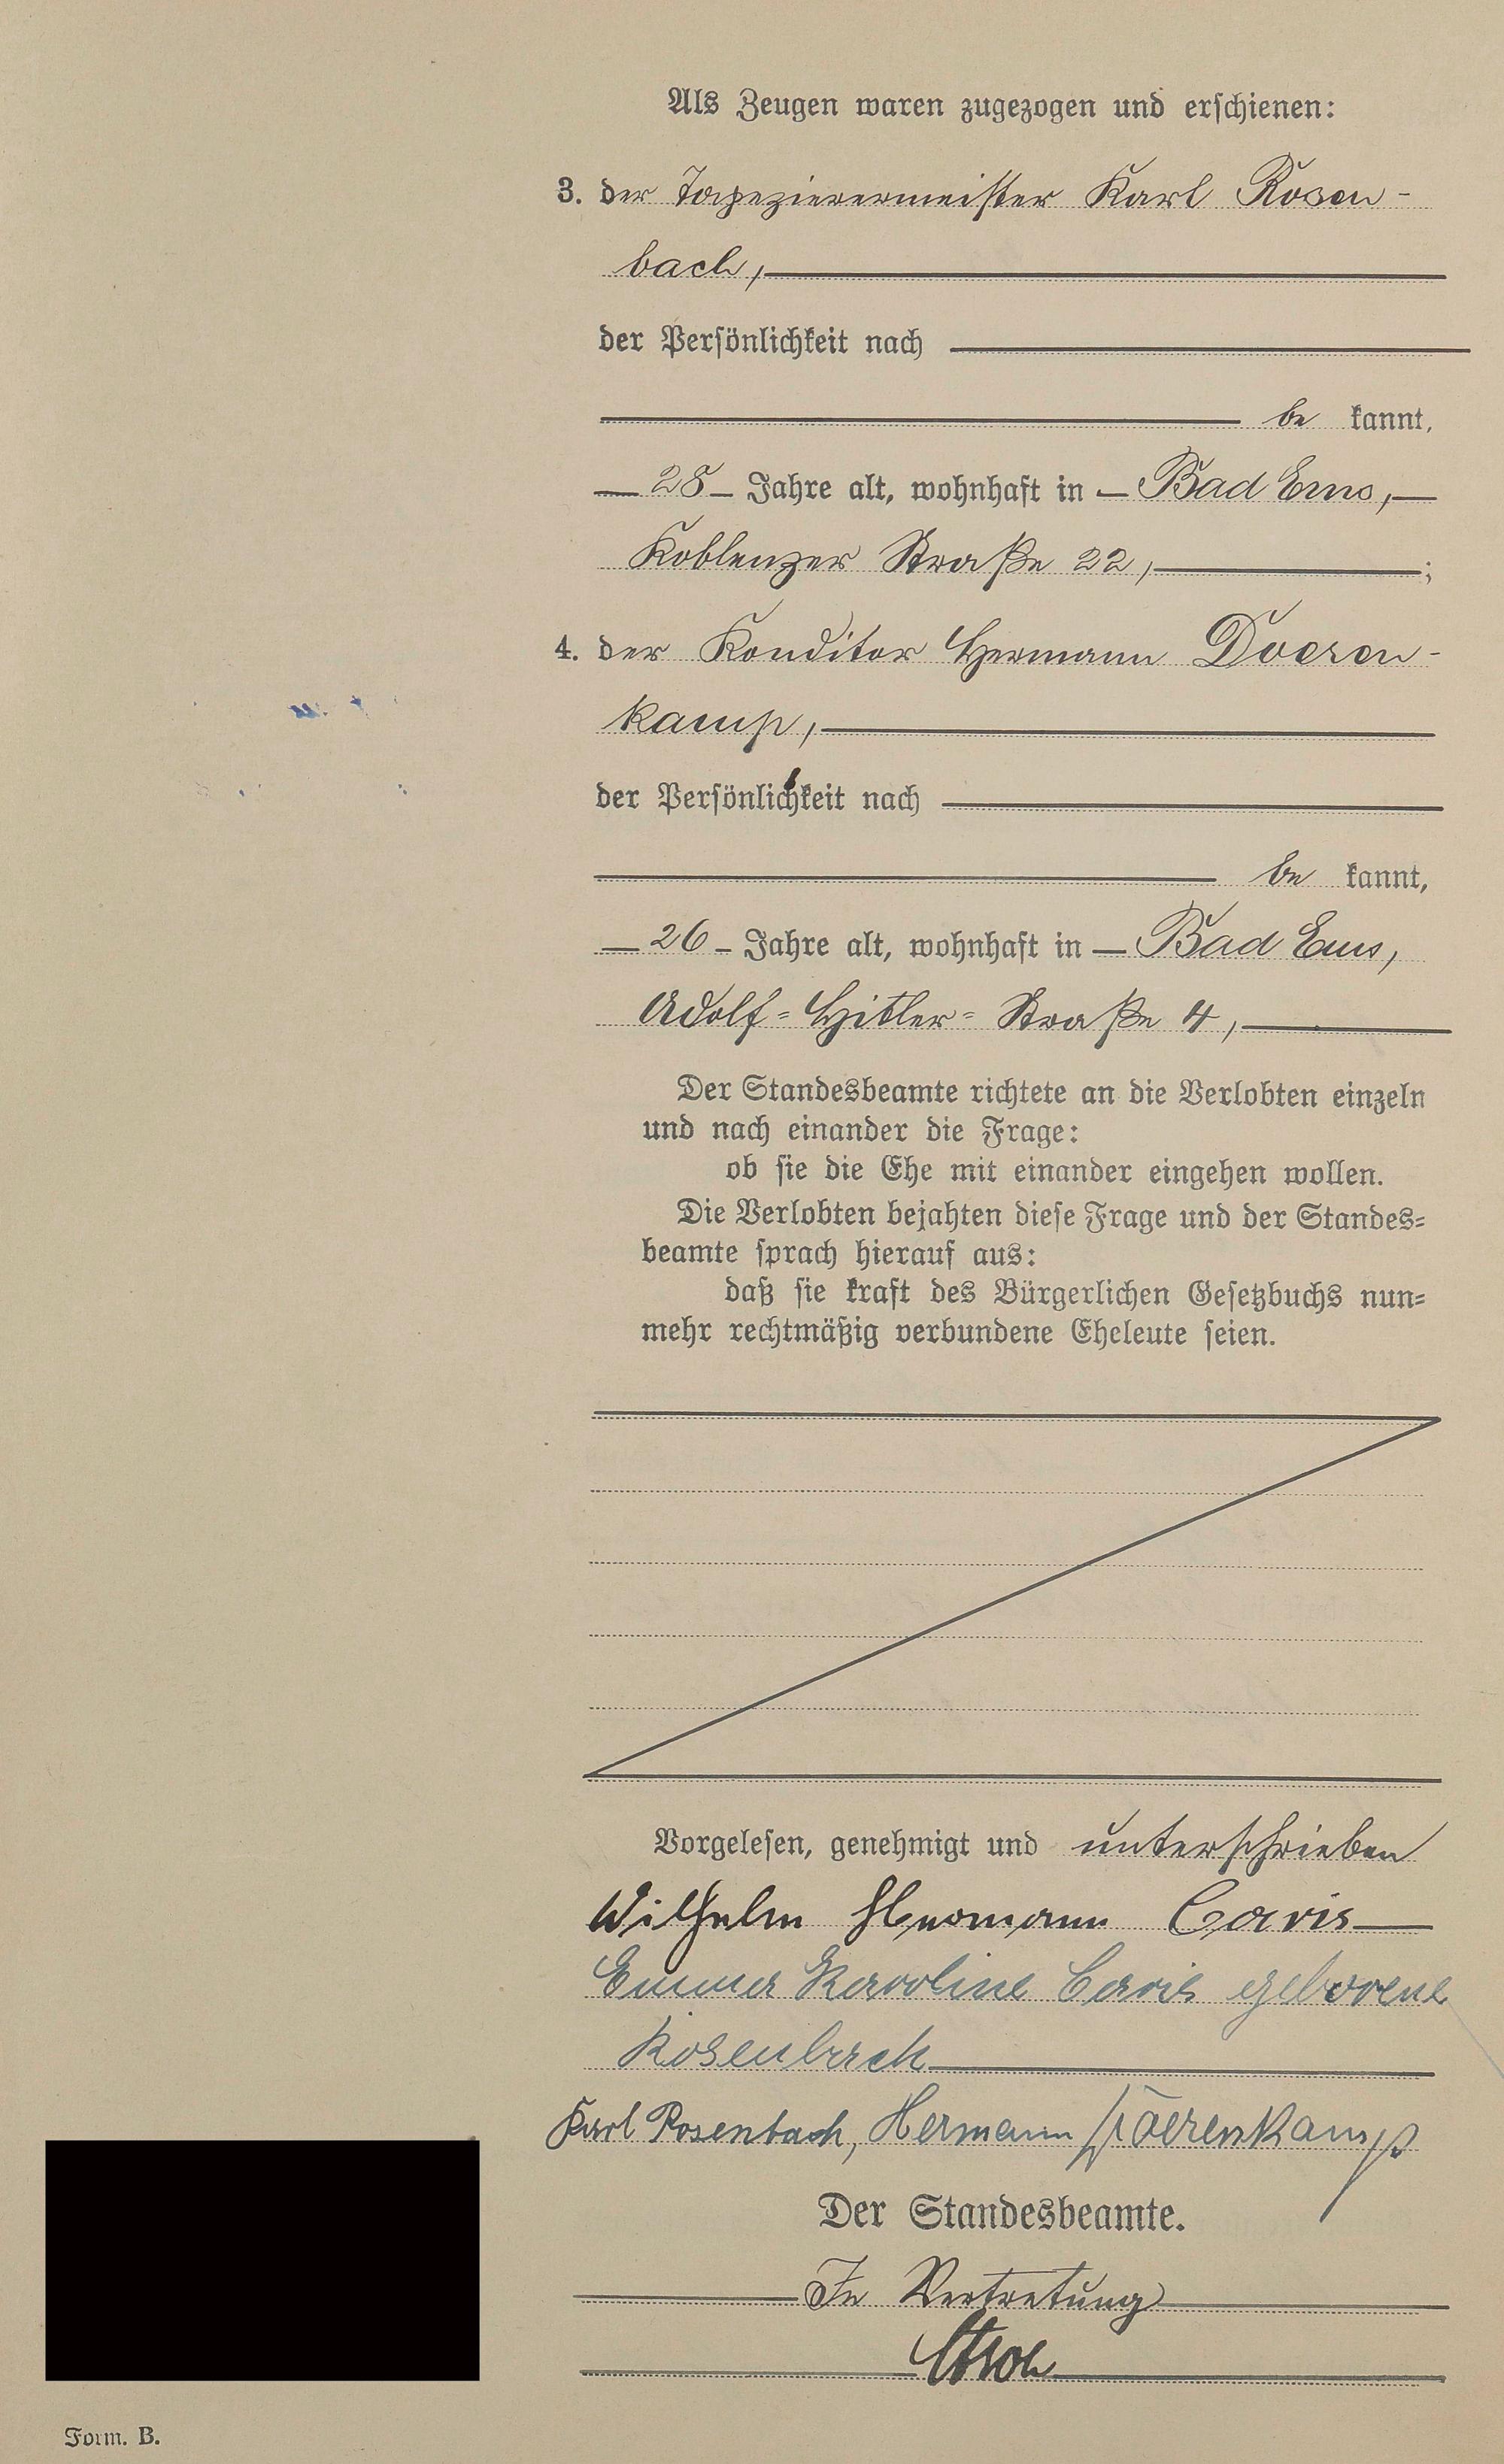 Als Zeugen waren zugezogen und erschienen:
3. der Tapezierermeister Karl Rosen-
bach,
der Persönlichkeit nach
be kannt,
28 Jahre alt, wohnhaft in Bad Ems,
Koblenzer Straße 22, ;
4. der Konditor Hermann Doeren-
kamp,
der Persönlichkeit nach
be kannt,
26 Jahre alt, wohnhaft in Bad Ems,
Adolf-Hitler-Straße 4,
Der Standesbeamte richtete an die Verlobten einzeln
und nach einander die Frage:
ob sie die Ehe mit einander eingehen wollen.
Die Verlobten bejahten diese Frage und der Standes-
beamte sprach hierauf aus:
daß sie kraft des Bürgerlichen Gesetzbuchs nun-
mehr rechtmäßig verbundene Eheleute seien.
Vorgelesen, genehmigt und unterschrieben
Wilhelm Hermann Caris
Emma Karoline Caris geborene
Rosenbach
Karl Rosenbach, Hermann Doerenkamp
Der Standesbeamte.
In Vertretung
Form. B.